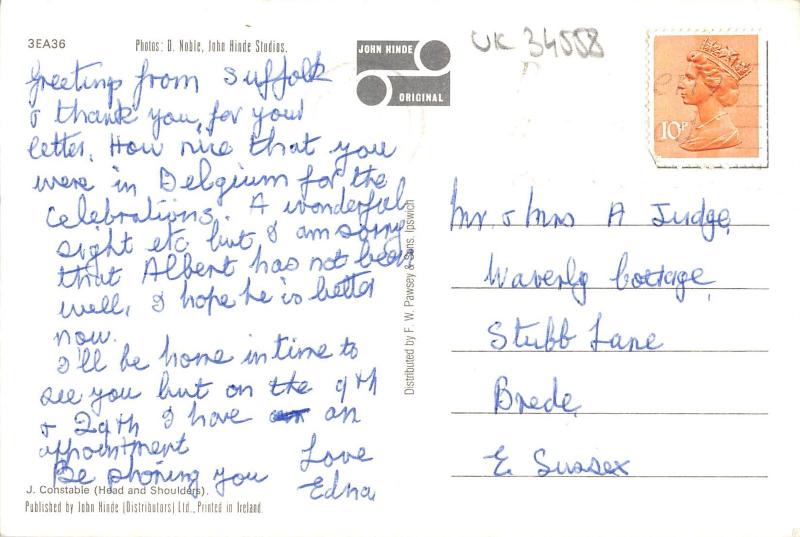 3EA36
Photos: D. Noble, John Hinde Studios.
JOHN HINDE
ORIGINAL
UK 34558
10P
Greetings from Suffolk
& thank you, for your
letter. How nice that you
were in Belgium for the
Celebrations. A wonderful
sight etc but I am sorry
that Albert has not been
well, I hope he is better
now.
I'll be home in time to
see you but on the 9th
& 29th I have an
appointment
Be phoning you
Love
Edna
Distributed by F. W. Pawsey & Sons. Ipswich
Mr & Mrs A Judge,
Waverly Cottage,
Stubb Lane
Brede,
E. Sussex
J. Constable (Head and Shoulders).
Published by John Hinde (Distributors) Ltd., Printed in Ireland.